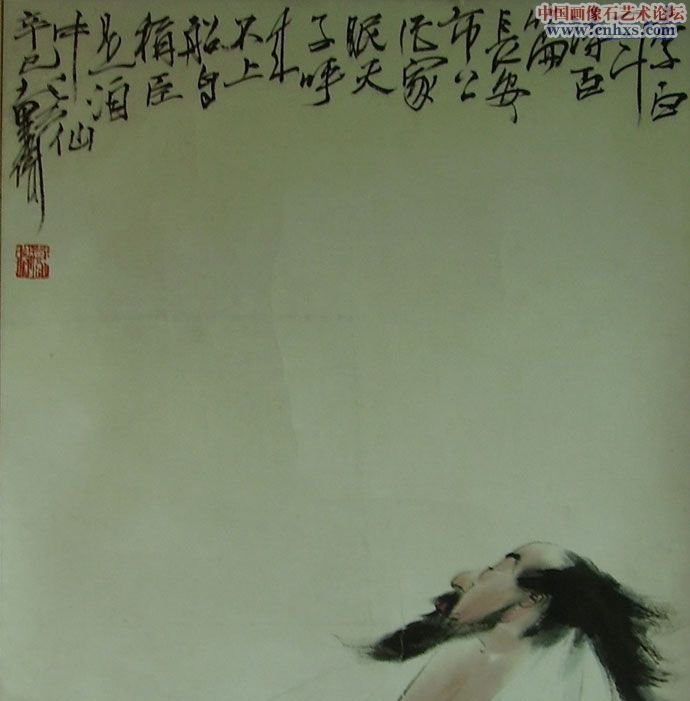 中国画像石艺术论坛
www.cnhxs.com
李白
斗
诗百
篇
長安
市
酒家
眠天
子呼
来
不上
船自
稱臣
是酒
中仙
辛巳